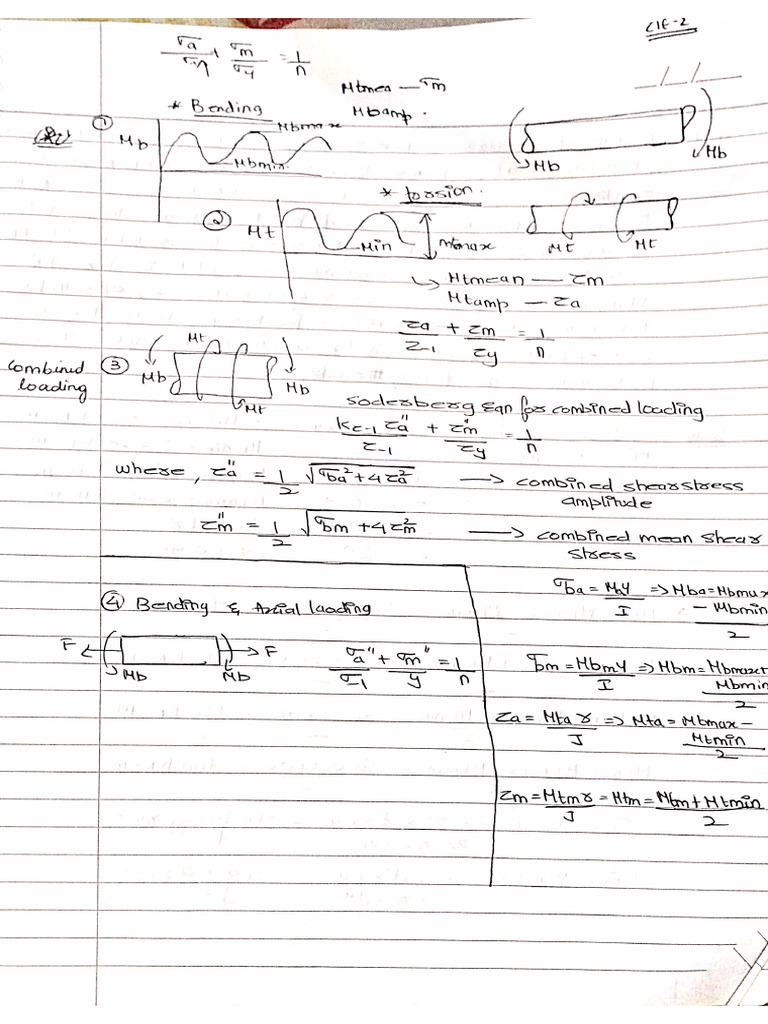 CIE-2
σa/σ-1 + σm/σy = 1/n
Mtmea — σm
* Bending
Mbamp.
① Mb Mbmax
Mbmin.
Mb Mb
* torsion.
② Mt Min mtmax
Mt Mt
↳ Mtmean — τm
Mtamp — τa
τa/τ-1 + τm/τy = 1/n
combined loading
③ Mt
Mb Mb
Mt
soderberg eqn for combined loading
kτ-1 τa"/τ-1 + τm"/τy = 1/n
where, τa" = 1/2 √σba² + 4τa² → combined shear stress
amplitude
τm" = 1/2 √σbm + 4τm² → combined mean shear
stress
④ Bending & Axial loading
F ← → F
Mb Mb
σa"/σ1 + σm"/y = 1/n
σba = MbY/I => Mba = Mbmax
- Mbmin/2
σbm = MbmY/I => Mbm = Mbmax+
Mbmin/2
τa = Mta r/J => Mta = Mbmax -
Mtmin/2
τm = Mtm r/J = Mtm = Mtm + Mtmin/2